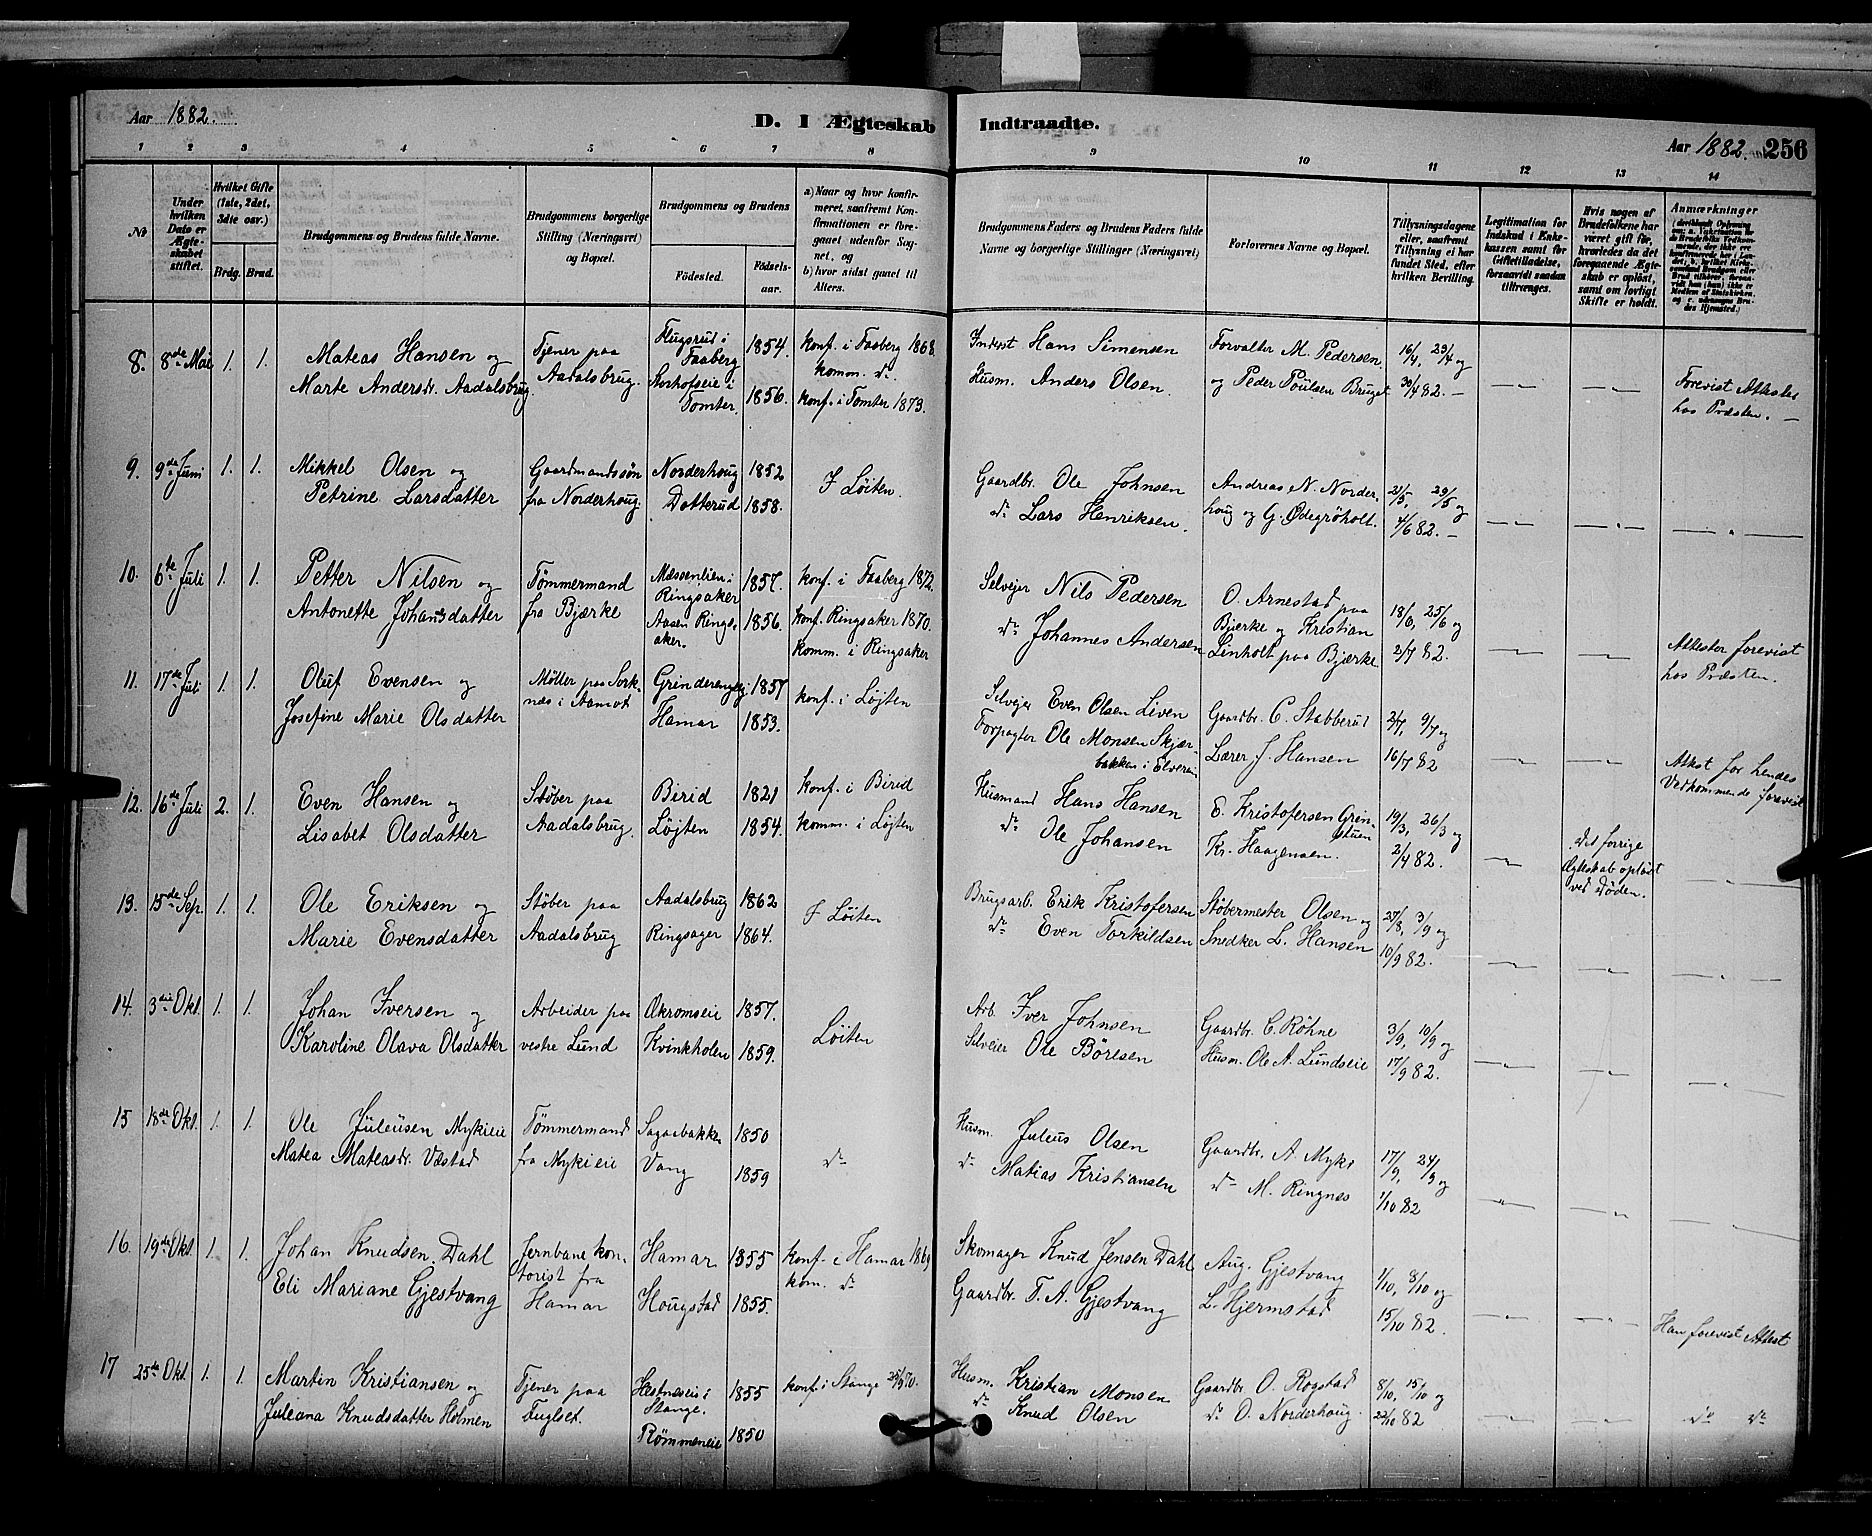 Aar 1882.
D. I Ægteskab Indtraadte.
Aar 1882. 256
1 2 3 4 5 6 7 8 9 10 11 12 13 14
No
Under hvilken Dato er Ægteskabet stiftet.
Hvilket Gifte (1ste, 2det, 3die osv.)
Brdg. Brud.
Brudgommens og Brudens fulde Navne.
Brudgommens borgerlige Stilling (Næringsvei) og Bopæl.
Brudgommens og Brudens
Fødested. Fødselsaar.
a) Naar og hvor konfirmeret, saafremt Konfirmationen er foregaaet udenfor Sognet, og
b) hvor sidst ganet til Alters.
Brudgommens Faders og Brudens Faders fulde Navne og borgerlige Stillinger (Næringsvei)
Forlovernes Navne og Bopæl.
Tillysningsdagene eller, saafremt Tillysning ei har fundet Sted, efter hvilken Bevilling.
Legitimation for Indskud i Enkekassen samt for Giftetilladelse, forsaavidt saadan tiltrænges.
Hvis nogen af Brudefolkene har været gift før, hvorledes da det foregaaende Ægteskab er opløst, samt om lovligt Skifte er holdt.
Anmærkninger
8. 8de Mai 1. 1. Mateas Hansen og Tjener paa Flugsrud i Faaberg 1854. konf. i Faaberg 1868. komm. do. Inderst Hans Simensen Forvalter M. Pedersen 16/4, 23/4 og
Marte Andersdr. Aadalsbrug Aadalsbrug. Storhofseie i Tomter. 1856. konf. i Tomter 1873. Husm. Anders Olsen. og Peder Poulsen Bruget 30/4 82. — Forevist Attester hos Præsten. —
9. 9de Juni 1. 1. Mikkel Olsen og Gaardmandssøn Norderhoug 1852 I Löiten. Gaardbr. Ole Johnsen Andreas N. Norder- 21/5, 29/5 og
Petrine Larsdatter fra Norderhoug. Dotterud 1858. do Lars Henriksen. houg og G. Ødegröholt. 4/6 82. —
10. 6te Juli 1. 1. Petter Nilsen og Tömmermand Mæssenlien i Ringsaker 1857. konf. i Faaberg 1872. Selvejer Nils Pedersen O. Arnestad paa 18/6, 25/6 og
Antonette Johansdatter fra Bjærke Aasen Ringsaker. 1856. konf. Ringsaker 1870. komm. i Ringsaker do Johannes Andersen Bjerke og Kristian Linholt paa Bjærke 2/7 82. Attester forevist hos Præsten.
11. 17de Juli 1. 1. Oluf Evensen og Möller paa Sork- Grinderenge 1857 konf. i Löjten Selvejer Even Olsen Liven Gaardbr. C. Stabberud 2/7, 9/7 og
Josefine Marie Olsdatter næs i Aamot Hamar 1853. Forpagter Ole Monsen Skjær- bakken i Elverum Lærer J. Hansen 16/7 82 Attest for hendes Vedkommende forevist
12. 16de Juli 2. 1. Even Hansen og Støber paa Birid 1821 konf. i Birid Husmand Hans Hansen E. Kristofersen Grin- stuen 19/3, 26/3 og
Lisabet Olsdatter Aadalsbrug. Løjten 1854. komm. i Løjten do Ole Johansen Kr. Haagensen. 2/4 82. Det forrige Ægteskab opløst ved Døden.
13. 15de Sep. 1. 1. Ole Eriksen og Støber paa Aadalsbrug 1862 I Löiten Brugsarb. Erik Kristofersen Støbermester Olsen og 27/8, 3/9 og
Marie Evensdatter Aadalsbrug Ringsager 1864. do Even Torkildsen Snedker L. Hansen 10/9 82.
14. 3die Okt. 1. 1. Johan Iversen og Arbeider paa Økromseie 1857. Löiten Arb. Iver Johnsen Gaardbr. C. Röhne 3/9, 10/9 og
Karoline Olava Olsdatter vestre Lund Kvinkholen 1859. Selveier Ole Böresen Husm. Ole A. Lundseie 17/9 82.
15 18de Okt. 1. 1. Ole Juleusen Mykieie Tömmermand Sagaebakke 1850 do Husm. Juleus Olsen Gaardbr. A Myke 17/9, 24/9 og
Matea Mateasdr. Væstad fra Mykieie Vang 1859 do Matias Kristiansen do M. Ringnes 1/10 82
16. 19de Okt. 1. 1. Johan Knudsen Dahl Jernbanekon- Hamar 1855 konf. i Hamar 1869 Skomager Knud Jensen Dahl Aug. Gjestvang 1/10, 8/10 og
Eli Mariane Gjestvang torist fra Hamar Hougstad 1855. kom. do Gaardbr. T. A. Gjestvang L. Hjermstad 15/10 82. Han forevist Attest
17 25de Okt. 1. 1. Martin Kristiansen og Tjener paa Hestneseie i Stange. 1855 konf. i Stange 25/9 70. Husm. Kristian Monsen Gaardbr. O. Rogstad 8/10, 15/10 og
Juleana Knudsdatter Holmen Fuglset. Rømmeneie 1850 do Knud Olsen do O. Norderhoug. 22/10 82 do do